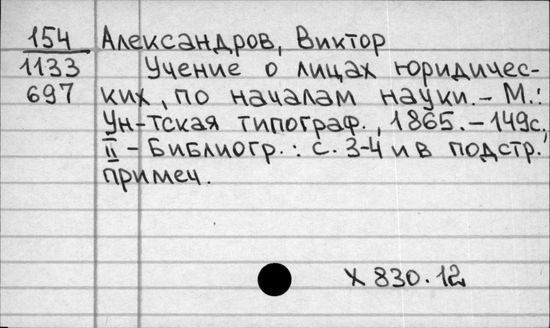 154 Александров, Виктор
1133 Учение о лицах юридичес-
697 ких, по началам науки. - М.:
Ун-тская типограф., 1865. - 149с,
II - Библиогр.: с. 3-4 и в подстр.
примеч.
X 830.12